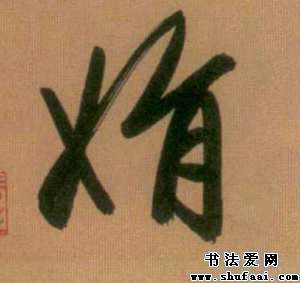 娟
书法爱网
www.shufaai.com